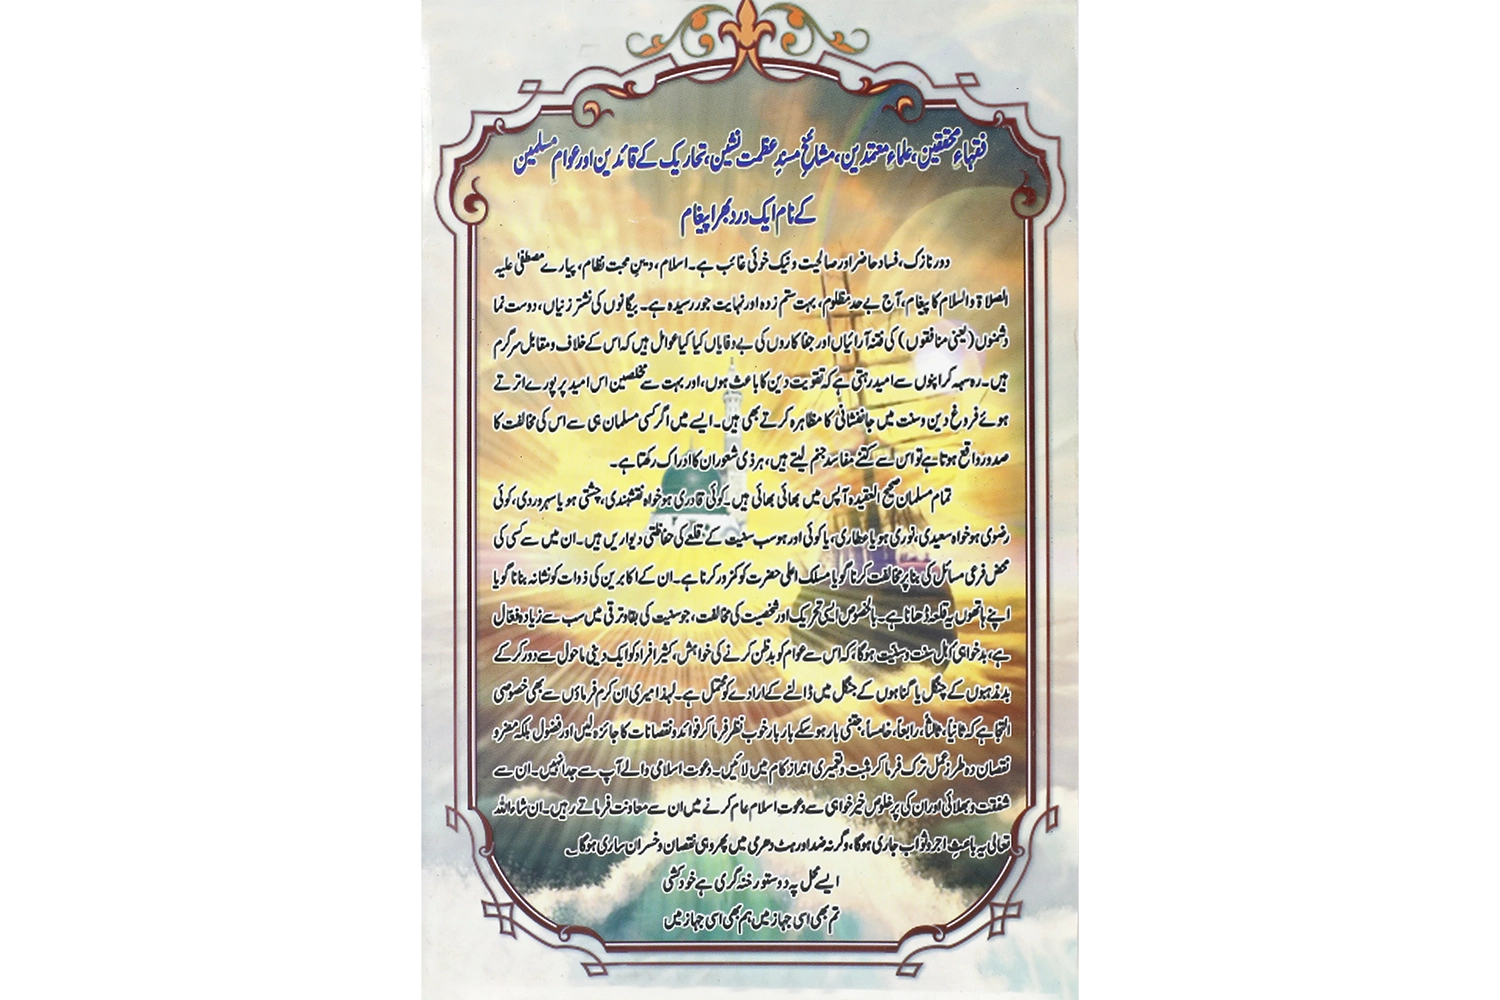 فقہاءِ محققین، علماءِ معتمدین، مشائخِ مسندِ عظمت نشین، تحاریک کے قائدین اور عوامِ مسلمین
کے نام ایک درد بھرا پیغام
دور نازک، فساد حاضر اور صالحیت و نیک خوئی غائب ہے۔ اسلام، دینِ محبت نظام، پیارے مصطفیٰ علیہ
الصلاۃ والسلام کا پیغام، آج بے حد مظلوم، بہت ستم زدہ اور نہایت جور رسیدہ ہے۔ بیگانوں کی نشتر زنیاں، دوست نما
دشمنوں (یعنی منافقوں) کی فتنہ آرائیاں اور جفا کاروں کی بے وفایاں کیا کیا عوامل ہیں کہ اس کے خلاف و مقابل سرگرم
ہیں۔ رہ سہہ کر اپنوں سے امید رہتی ہے کہ تقویت دین کا باعث ہوں، اور بہت سے مخلصین اس امید پر پورے اترتے
ہوئے فروغِ دین و سنت میں جانفشانی کا مظاہرہ کرتے بھی ہیں۔ ایسے میں اگر کسی مسلمان ہی سے اس کی مخالفت کا
صدور واقع ہوتا ہے تو اس سے کتنے مفاسد جنم لیتے ہیں، ہر ذی شعور ان کا ادراک رکھتا ہے۔
تمام مسلمان صحیح العقیدہ آپس میں بھائی بھائی ہیں۔ کوئی قادری ہو خواہ نقشبندی، چشتی ہو یا سہروردی، کوئی
رضوی ہو خواہ سعیدی، نوری ہو یا عطاری، یا کوئی اور ہو سب سنیت کے قلعے کی حفاظتی دیواریں ہیں۔ ان میں سے کسی کی
محض فرعی مسائل کی بنا پر مخالفت کرنا گویا مسلک اعلی حضرت کو کمزور کرنا ہے۔ ان کے اکابرین کی ذوات کو نشانہ بنانا گویا
اپنے ہاتھوں یہ قلعہ ڈھانا ہے۔ بالخصوص ایسی تحریک اور شخصیت کی مخالفت، جو سنیت کی بقا و ترقی میں سب سے زیادہ فعال
ہے، بدخواہی اہل سنت و سنیت ہوگا؛ کہ اس سے عوام کو بدظن کرنے کی خواہش، کثیر افراد کو ایک دینی ماحول سے دور کر کے
بدمذہبوں کے چنگل یا گناہوں کے جنگل میں ڈالنے کے ارادے کو محتمل ہے۔ لہذا میری ان کرم فرماؤں سے بھی خصوصی
التجا ہے کہ ثانیاً، ثالثاً، رابعاً، خامساً، جتنی بار ہو سکے بار بار خوب نظر فرما کر فوائد و نقصانات کا جائزہ لیں اور فضول بلکہ مضر و
نقصان دہ طرزِ عمل ترک فرما کر مثبت و تعمیری انداز کام میں لائیں۔ دعوت اسلامی والے آپ سے جدا نہیں۔ ان سے
شفقت و بھلائی اور ان کی پرخلوص خیر خواہی سے دعوتِ اسلام عام کرنے میں ان سے معاونت فرماتے رہیں۔ ان شاء اللہ
تعالی یہ باعثِ اجر و ثواب جاری ہوگا، وگرنہ ضد اور ہٹ دھرمی میں پھر وہی نقصان و خسران ساری ہوگا۔
ایسے محل پہ دوستو رخنہ گری ہے خودکشی
تم بھی اسی جہاز میں ہم بھی اسی جہاز میں